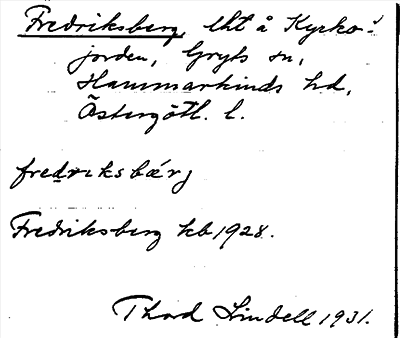 Fredriksberg, lht å Kyrko-
jorden, Gryts sn,
Hammarkinds hd,
Östergötl. l.
fredrɩksbærj
Fredriksberg kb 1928.
Thord Lindell 1931.